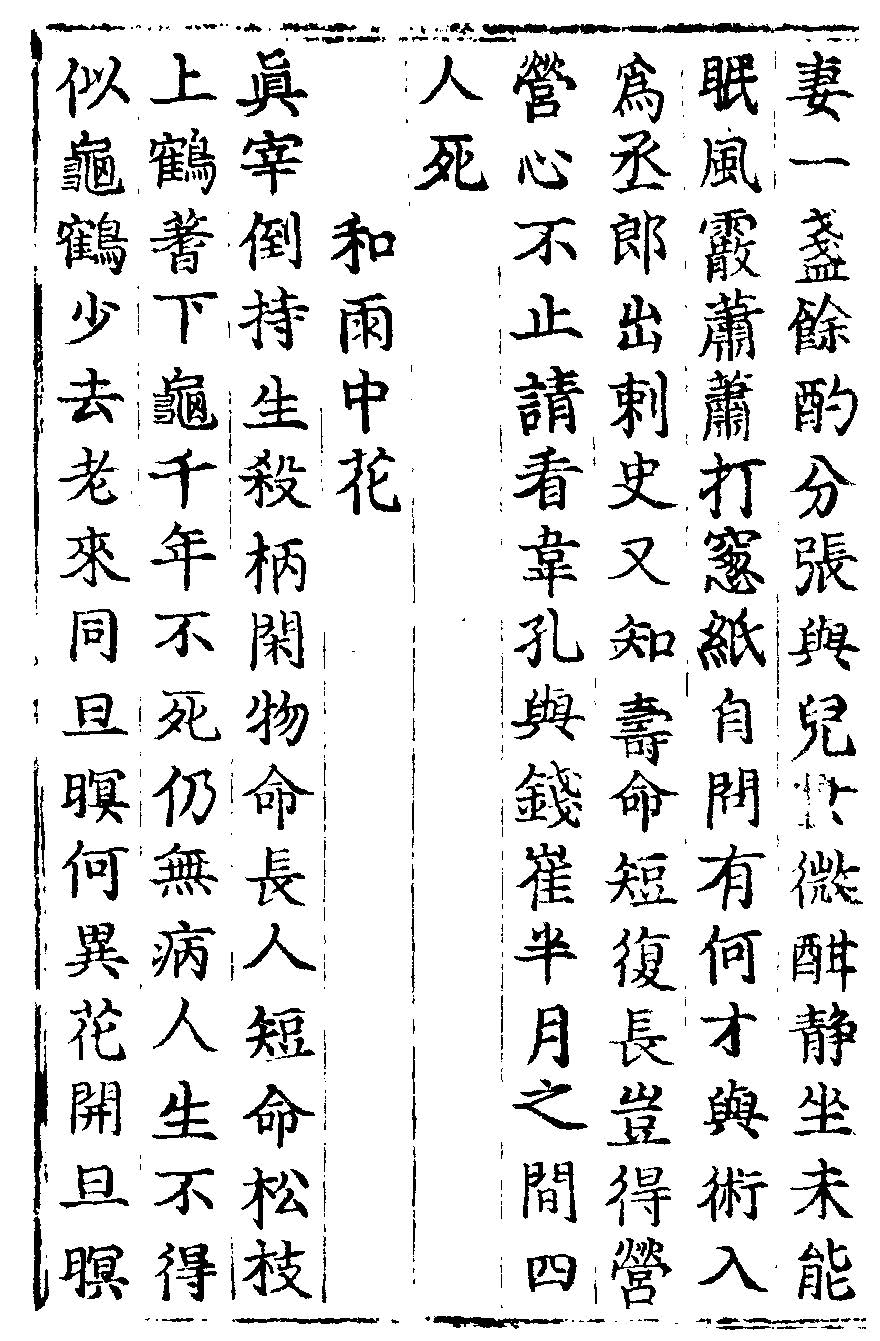 妻一盞餘酌分張與兒女微酣静坐未能
眠風霰蕭蕭打窻紙自問有何才與術入
爲丞郎出刺史又知壽命短復長豈得營
營心不止請看韋孔與錢崔半月之間四
人死
和雨中花
眞宰倒持生殺柄閑物命長人短命松枝
上鶴蓍下龜千年不死仍無病人生不得
似龜鶴少去老來同旦暝何異花開旦暝